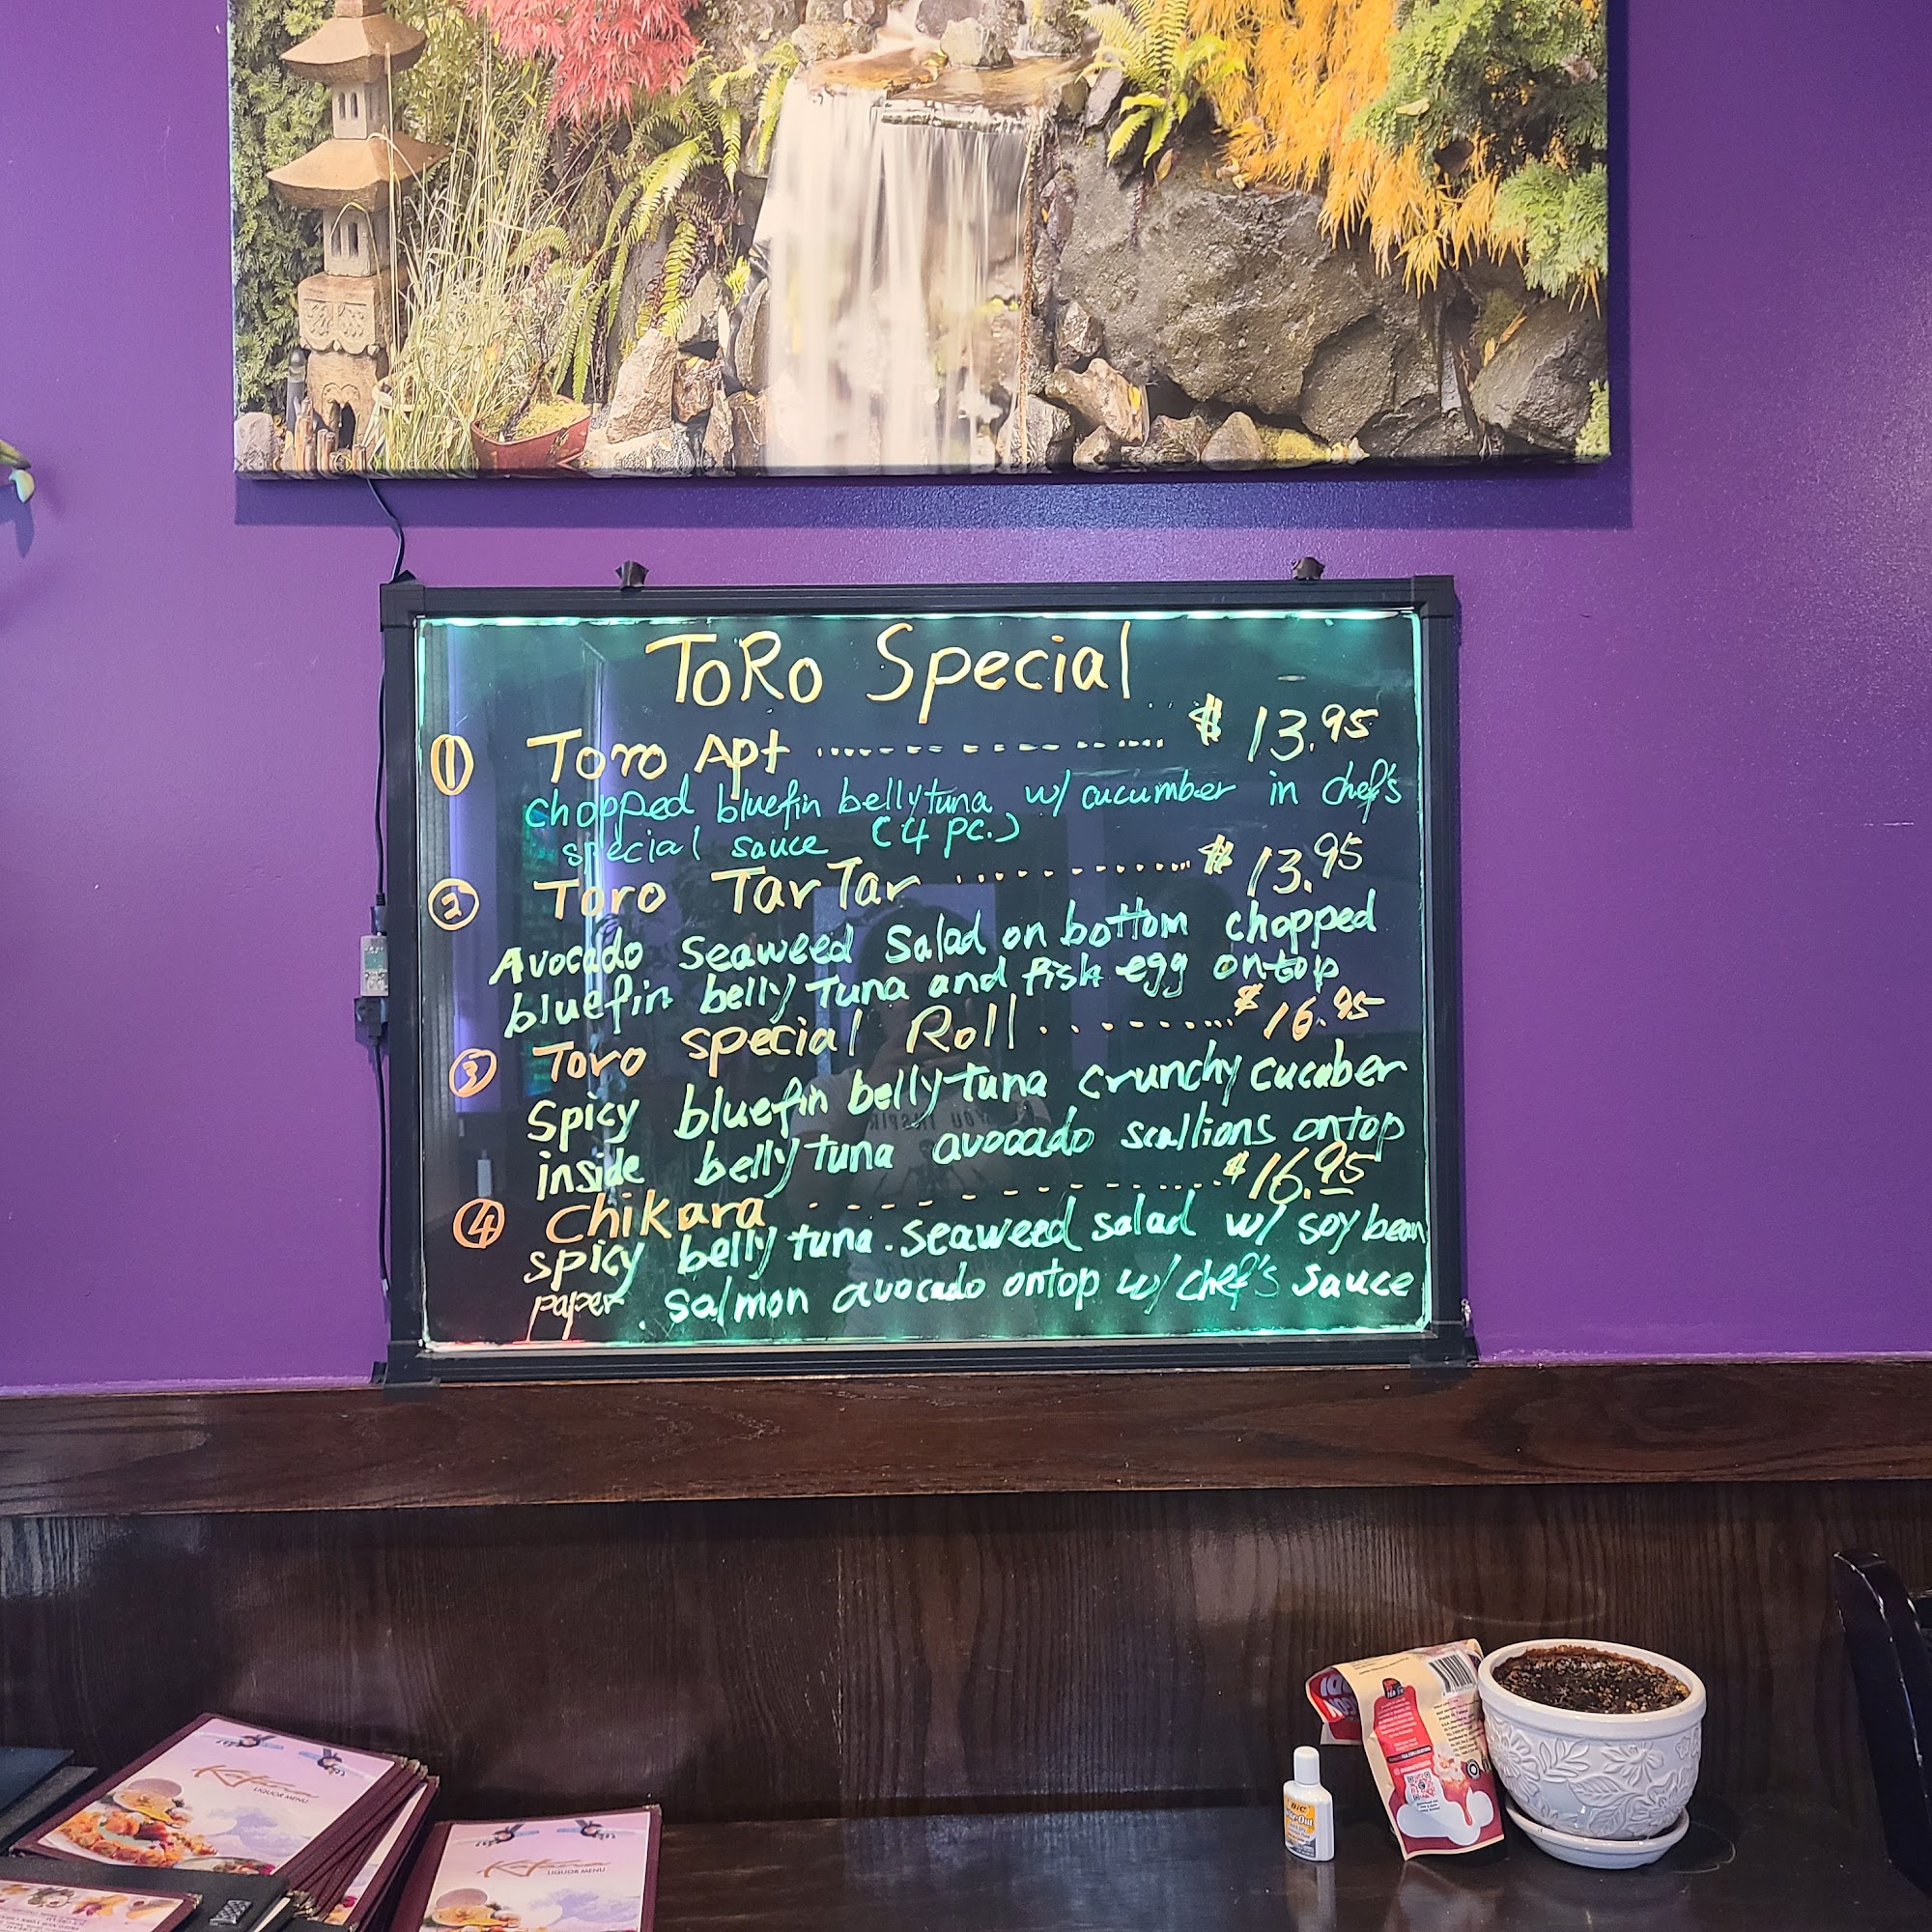 ToRo Special
① Toro Apt ..................... $ 13.95
chopped bluefin belly tuna w/ cucumber in chef's
special sauce (4 pc.)
② Toro TarTar ............ $ 13.95
Avocado Seaweed Salad on bottom chopped
bluefin belly Tuna and fish egg ontop
③ Toro special Roll ............ $ 16.95
Spicy bluefin belly tuna crunchy cucaber
inside belly tuna avocado scallions ontop
④ Chikara ..................... $16.95
spicy belly tuna. seaweed salad w/ soy bean
paper. salmon avocado ontop w/ chef's sauce
LIQUOR MENU
LIQUOR MENU
BIC